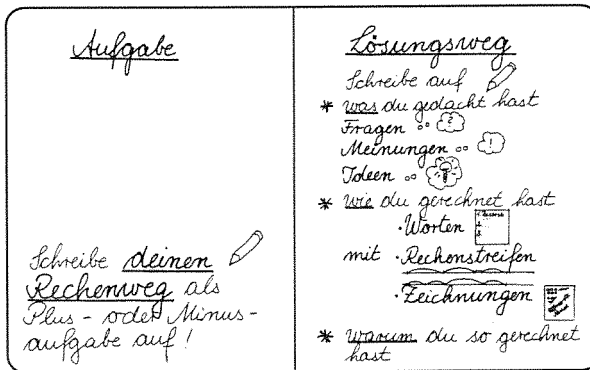 Aufgabe
Schreibe deinen
Rechenweg als
Plus- oder Minus-
aufgabe auf!
Lösungsweg
Schreibe auf
* was du gedacht hast
Fragen
?
Meinungen
!
Ideen
* wie du gerechnet hast
· Worten
mit · Rechenstreifen
· Zeichnungen
* warum du so gerechnet
hast